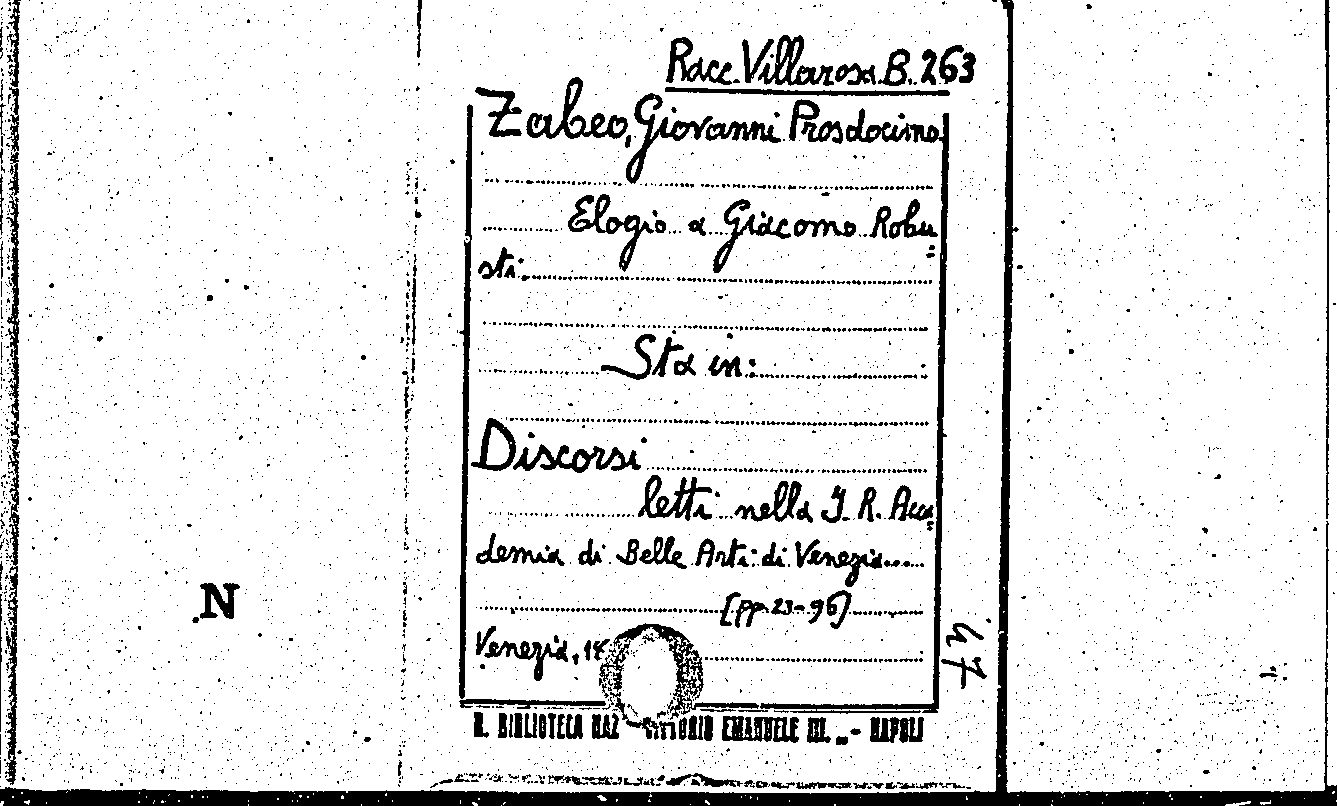 Racc. Villarosa B. 263
Zabeo, Giovanni Prosdocimo.
Elogio a Giacomo Robu=
sti.
Sta in:
Discorsi
letti nella I. R. Acca=
demia di Belle Arti di Venezia....
[pp. 23-96]
Venezia, 18
47
N
R. BIBLIOTECA NAZ VITTORIO EMANUELE III. „- NAPOLI